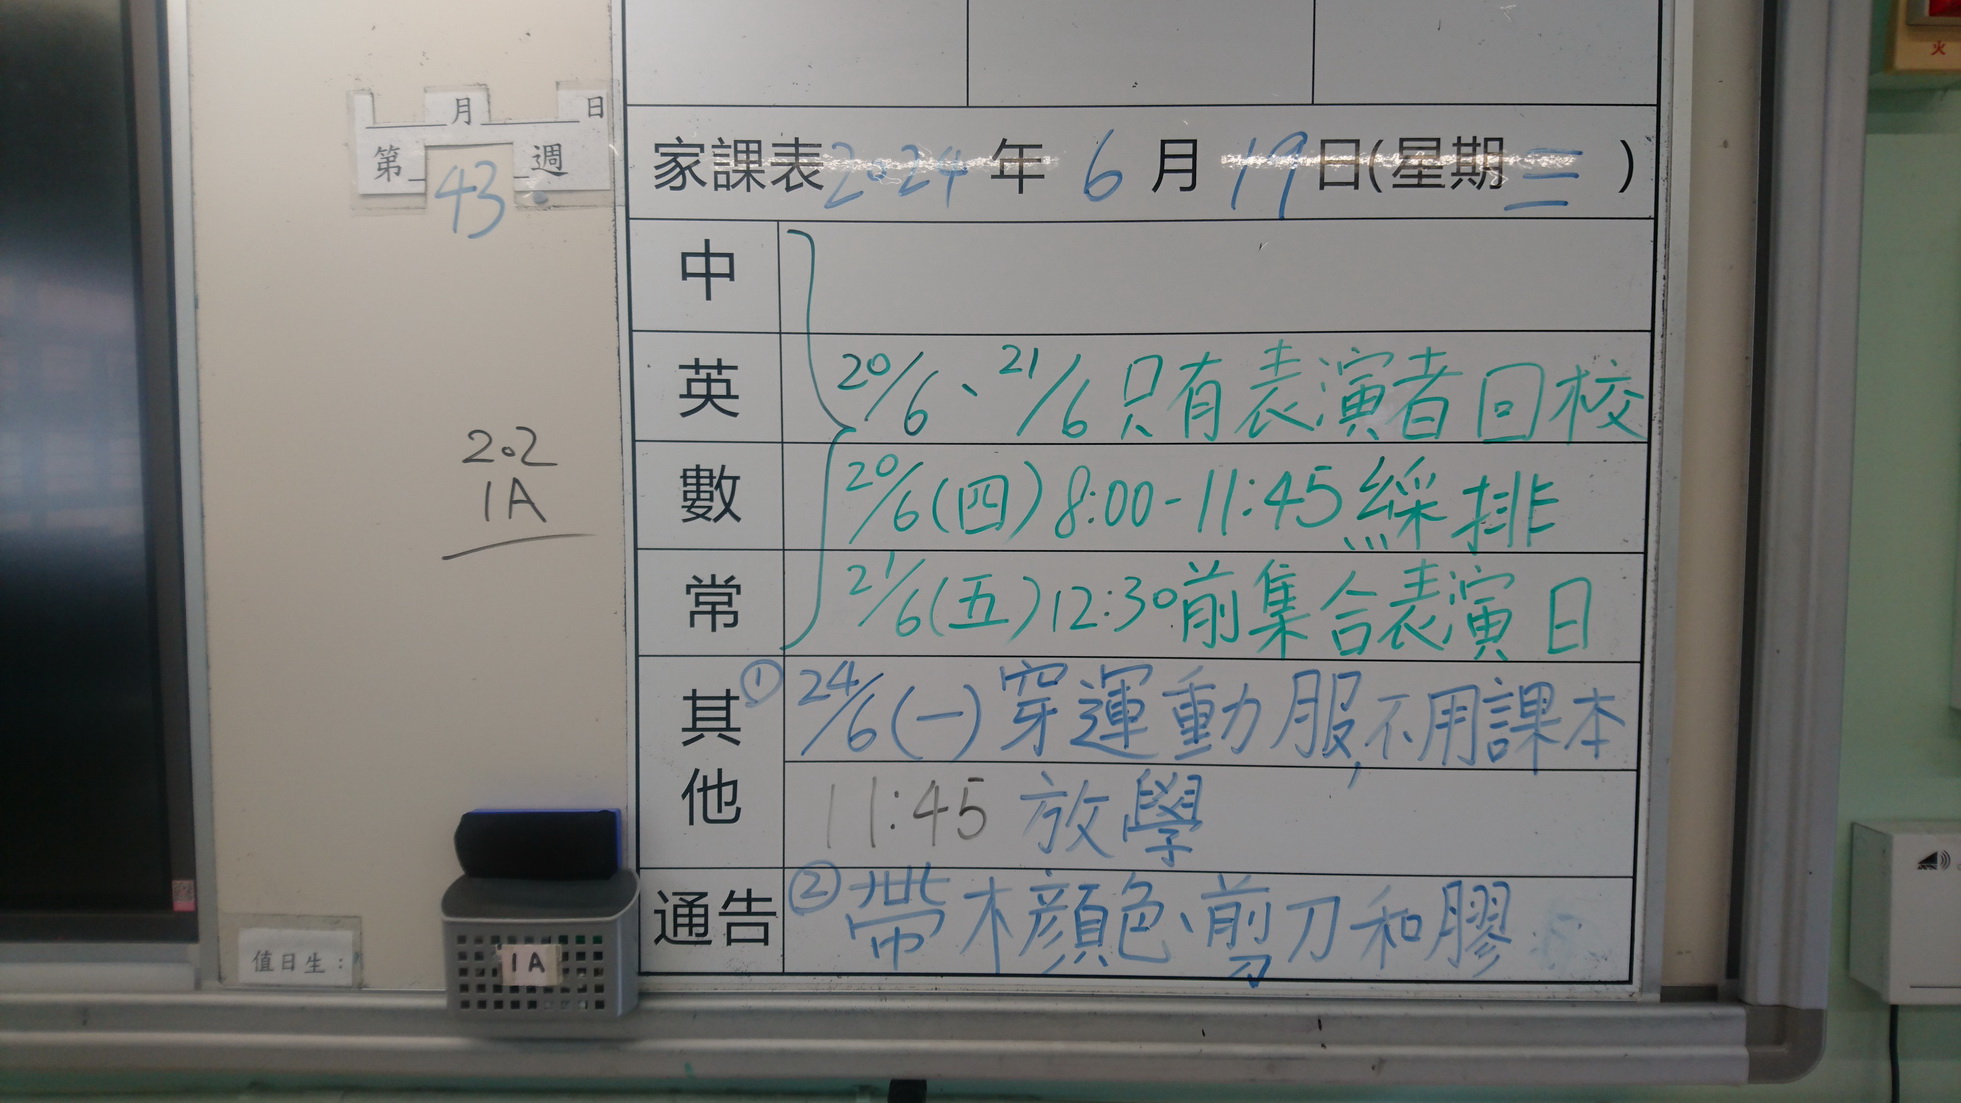 月 日
第 43 週
家課表 2024 年 6 月 19 日(星期三)
中
英 20/6、21/6 只有表演者回校
數 20/6(四) 8:00-11:45 綵排
常 21/6(五) 12:30前集合表演日
其他 ① 24/6(一) 穿運動服,不用課本
11:45 放學
通告 ② 帶木顏色、剪刀和膠
202
1A
值日生:
1A
火